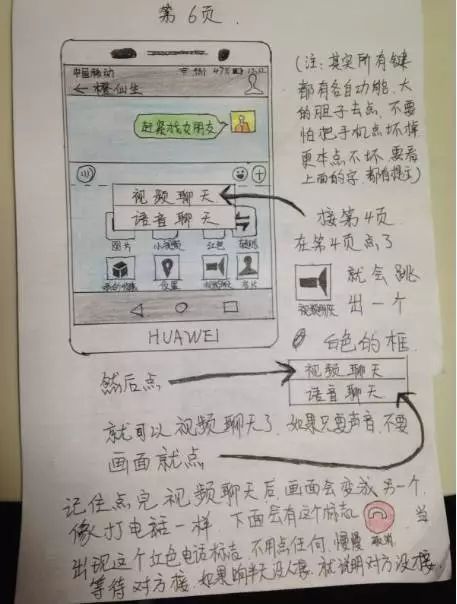 第6页
中国移动 47%
← 橙仙生
赶紧找女朋友
视频聊天
语音聊天
图片 小视频 红包
位置 名片
HUAWEI
(注: 其实所有键
都有各自功能, 大
的胆子去点, 不要
怕把手机点坏掉
更本点不坏. 要看
上面的字. 都有提示)
接第4页
在第4页点了
就会跳
出一个
白色的框
视频聊天
语音聊天
然后点
就可以视频聊天了. 如果只要声音, 不要
画面就点
记住点完视频聊天后画面会变成另一个,
像打电话一样, 下面会有这个标志 当
取消
出现这个红色电话标志 不用点任何, 慢慢
等待对方接. 如果响半天没人接, 就说明对方没接.